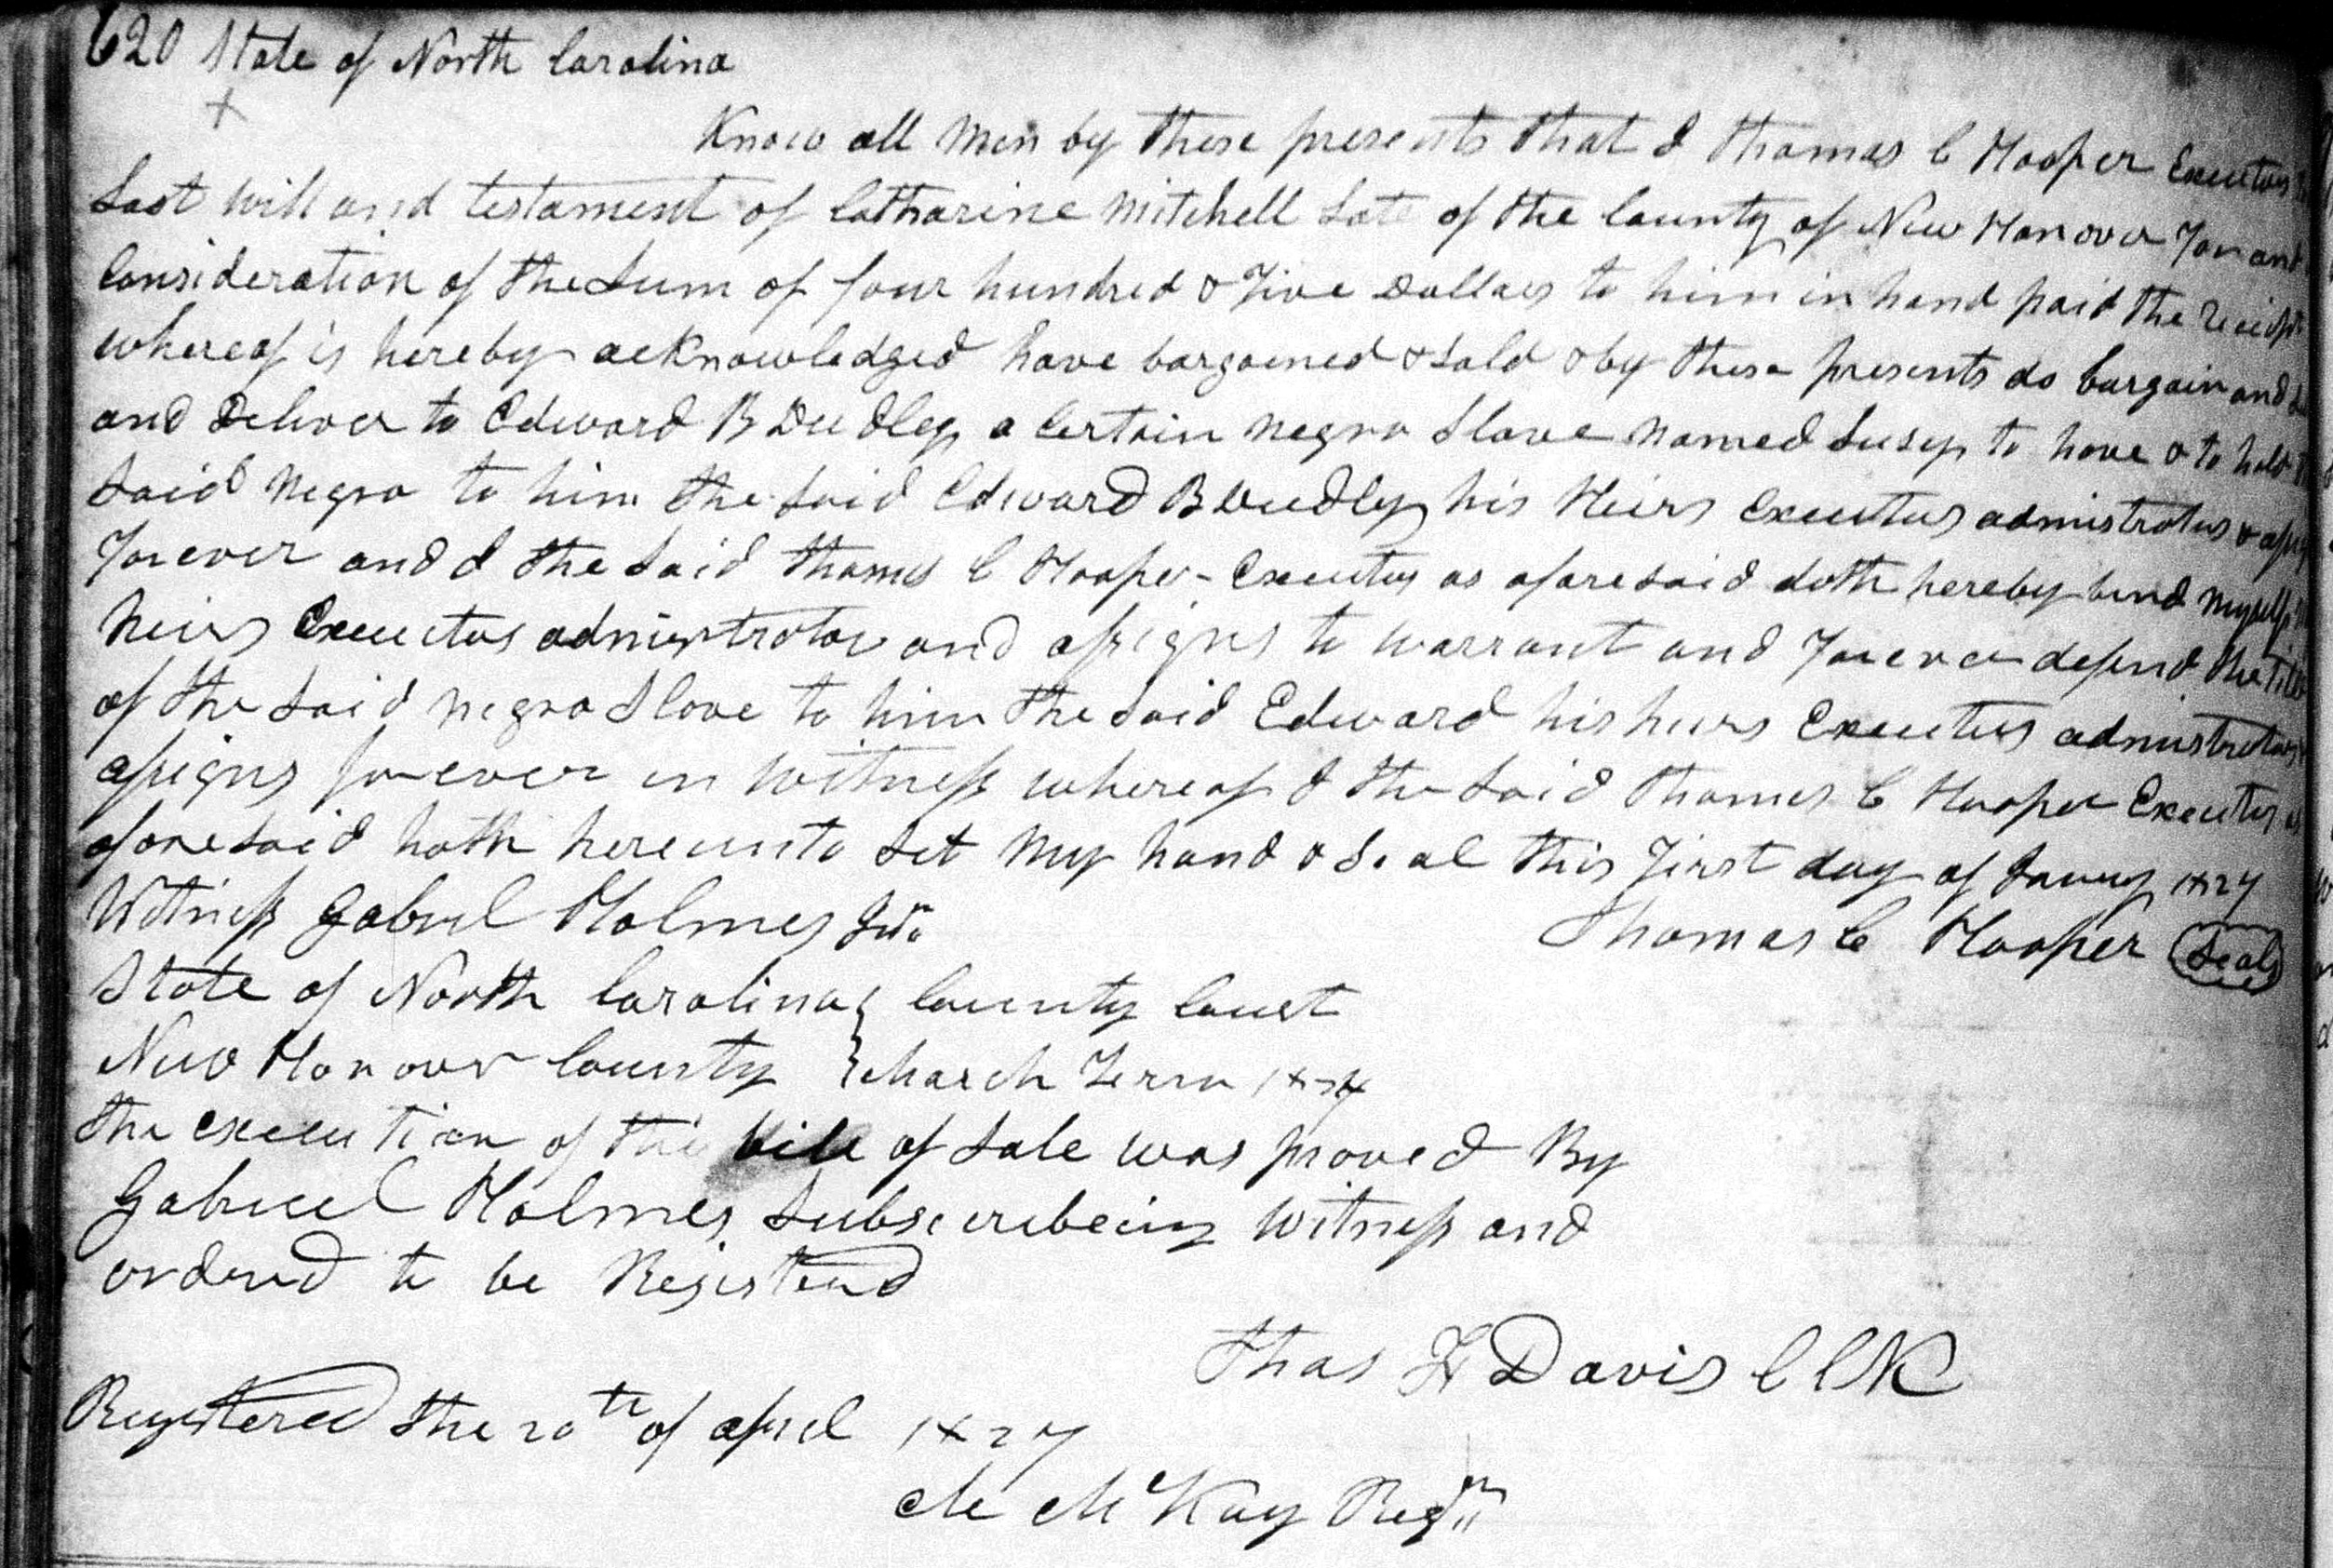 620 State of North Carolina
Know all Men by these presents that I Thomas C Hooper Executor
Last Will and testament of Catharine Mitchell Late of the County of New Hanover For and
Consideration of the Sum of four hundred & Five Dollars to him in hand paid the receipt
whereof is hereby acknowledged have bargained & Sold & by these presents do bargain and
and Deliver to Edward B Dudley a Certain negro Slave Named Susey to have & to hold
Said Negro to him the Said Edward B Dudley his Heirs Executors admistrators &
Forever and I the Said Thomas C Hooper - Executor as aforesaid doth hereby bind myself
heirs Executors administrator and assigns to warrant and Forever defend the Title
of the Said negro Slave to him the Said Edward his heirs Executors admistrators
assigns forever in Witness whereof I the Said Thomas C Hooper Executor as
aforesaid hath hereunto Set My hand & Seal this First day of Janury 1827
Witness Gabriel Holmes Junr Thomas C Hooper Seal
State of North Carolina County Court
New Hanover County March Term 1827
the execution of this bill of Sale was proved By
Gabriel Holmes Subscribeing Witness and
ordered to be Registered
Thos F Davis Clk
Registered the 20th of april 1827
McKay Regr